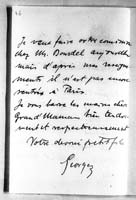 Je veux faire votre commission
chez Mr. Bourdel aujourd'hui
mais d'après mes
il n'est pas encore
rentré à Paris
Je vous serre les mains chère
Grand'Maman bien tendre
ment et respectueusement
Votre dévoué petit fils
Georges